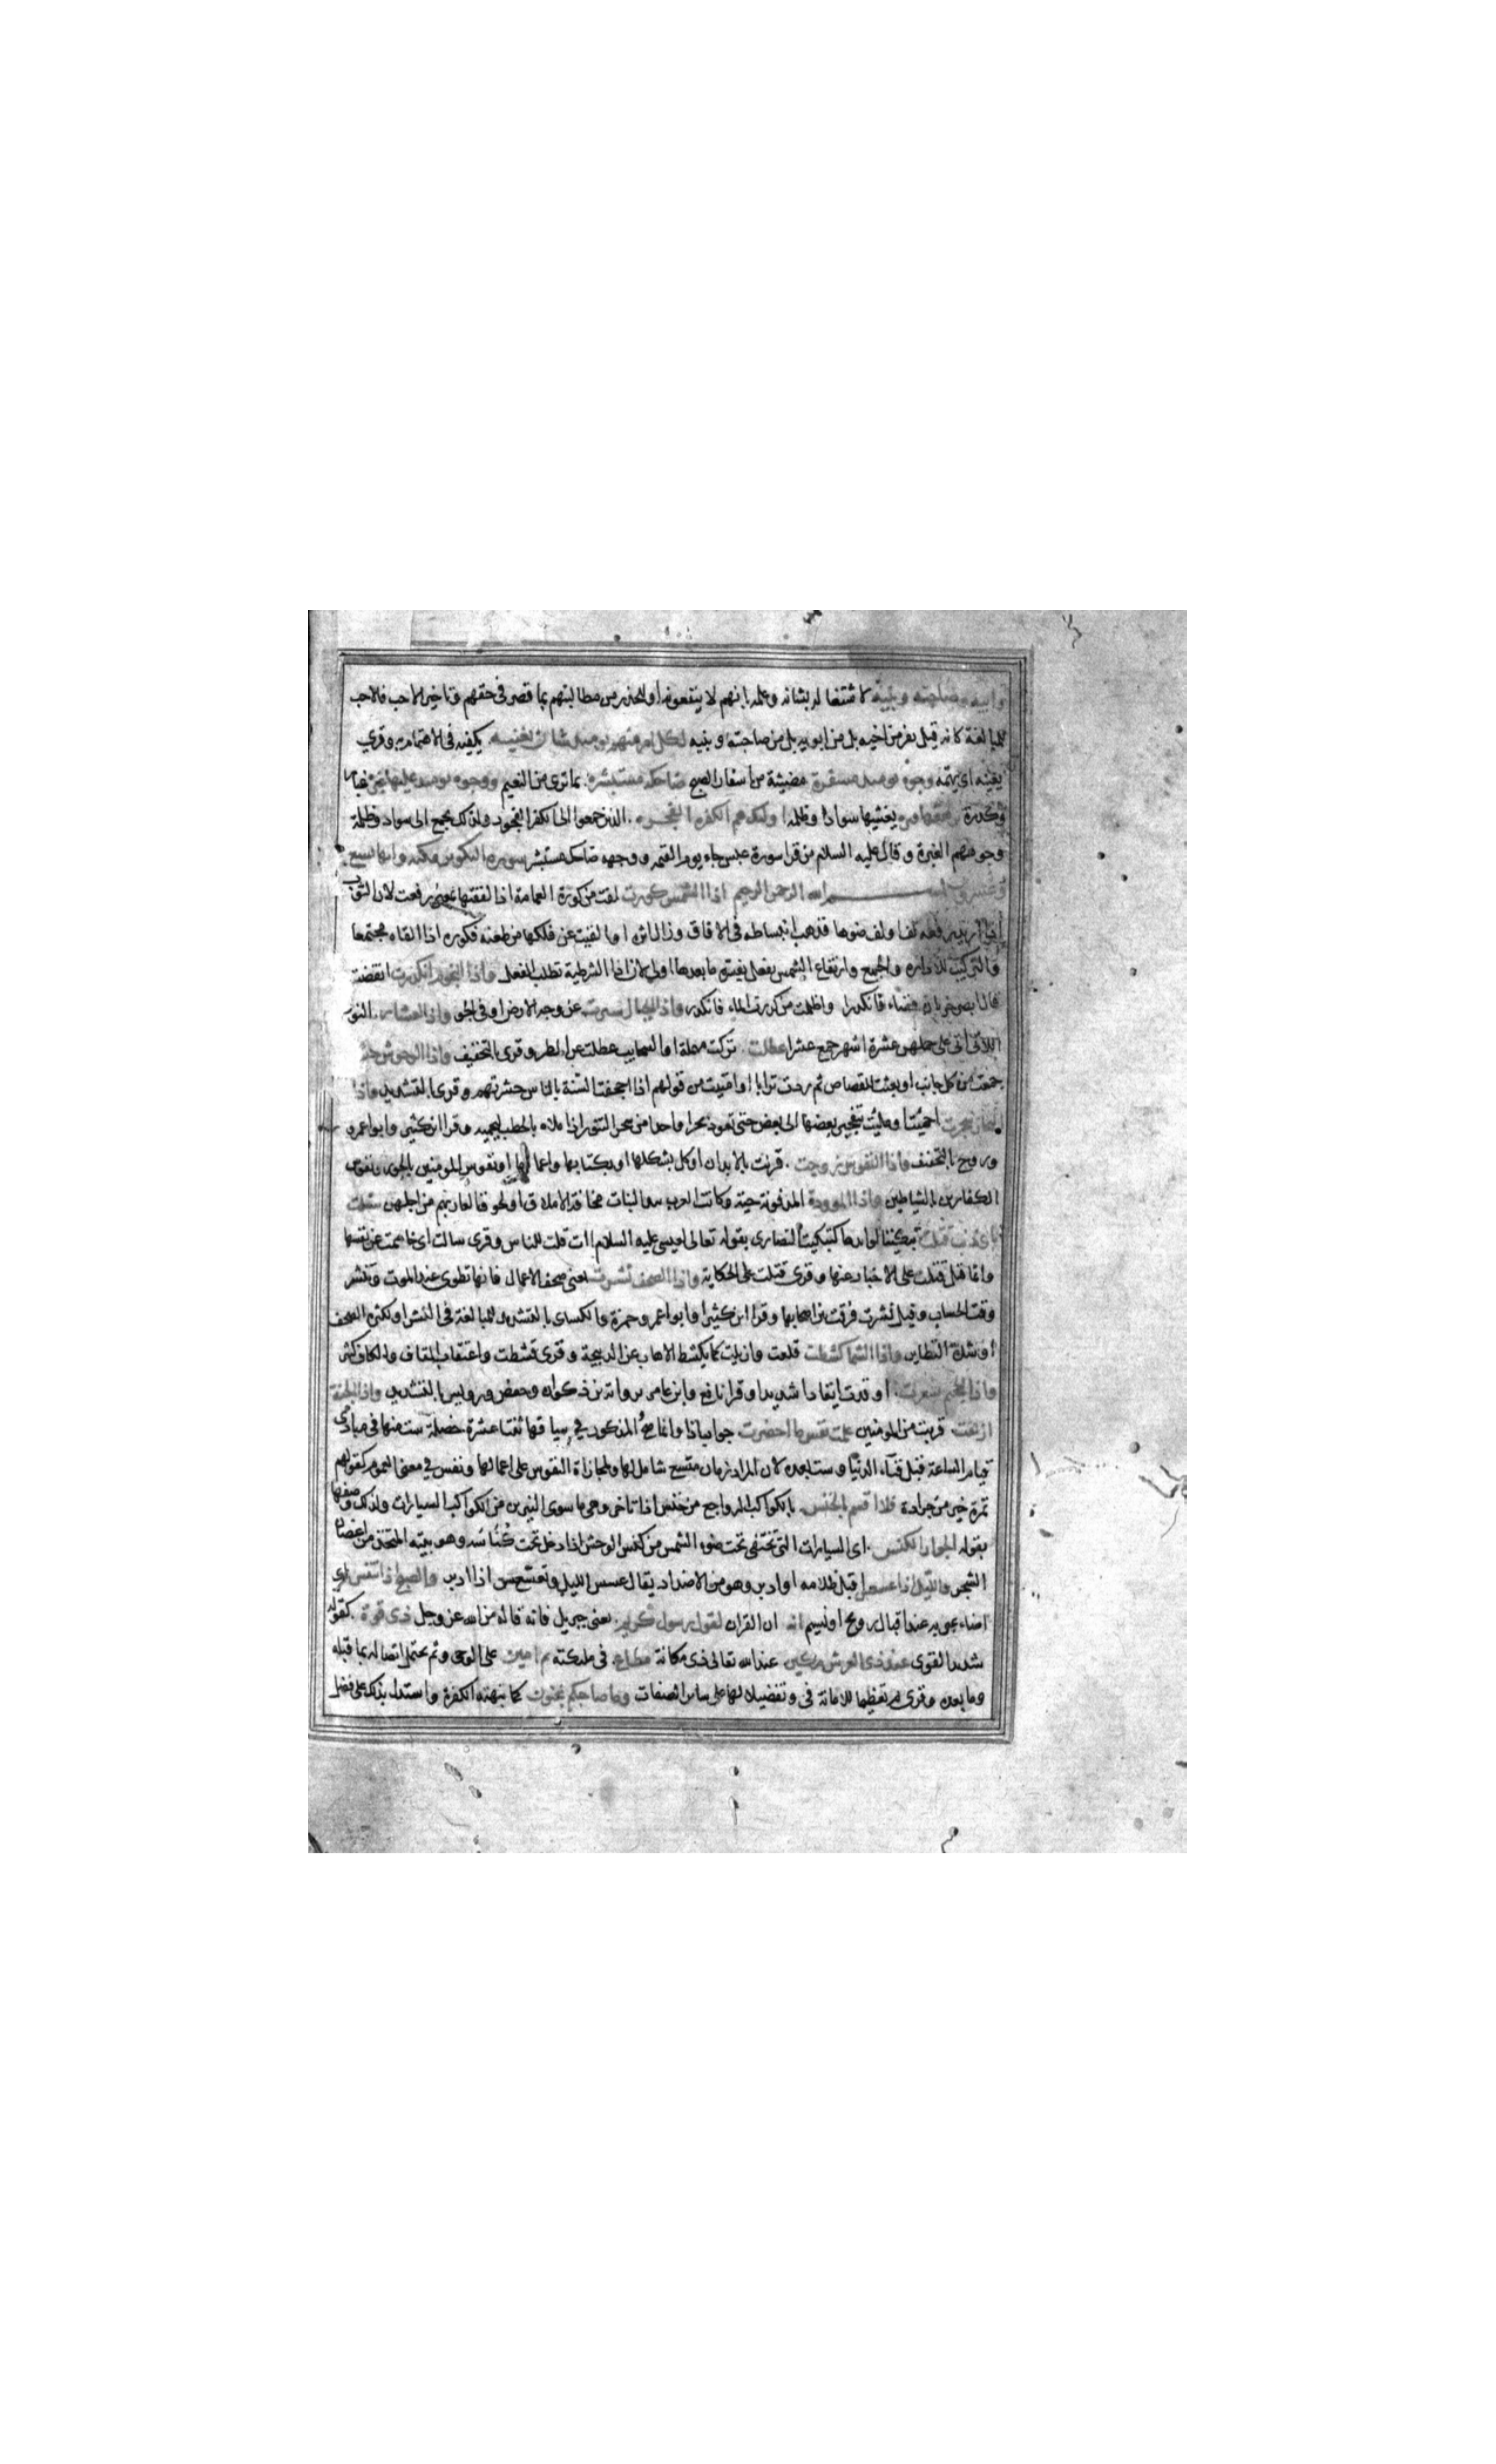 وابيه وصاحبته وبنيه لاشتغاله بشانه وعلمه بانهم لا ينفعونه او للحذر من مطالبتهم بما قصر في حقهم وتاخير الاحب فالاحب
للمبالغة كانه قيل يفر من اخيه بل من ابويه بل من صاحبته وبنيه لكل امرئ منهم يومئذ شان يغنيه يكفيه في الاهتمام به وقري
يعنيه اى يهمه وجوه يومئذ مسفرة مضيئة من اسفار الصبح ضاحكة مستبشرة بما ترى من النعيم ووجوه يومئذ عليها غبرة غبار
وكدرة ترهقها قترة يغشيها سواد وظلمة اولئك هم الكفرة الفجرة الذين جمعوا الى الكفر الفجور ولذلك يجمع الى سواد وظلمة
وجوههم الغبرة وقال عليه السلام من قرا سورة عبس جاء يوم القيمة ووجهه ضاحك مستبشر سورة التكوير مكية وايها تسع
وعشرون بسم الله الرحمن الرحيم اذا الشمس كورت لفت من كورة العمامة اذا لففتها بمعنى رفعت لان الثوب
اذا اريد رفعه لف او لف ضوها فذهب انبساطه في الافاق وزال اثره او القيت عن فلكها من طعنه فكوره اذا القاه مجتمعا
والتركيب للادارة والجمع وارتفاع الشمس بفعل يفسره ما بعدها اولى لان اذا الشرطية تطلب الفعل واذا النجوم انكدرت انقضت
قال ابصر خربان فضاء فانكدر او اظلمت من كدرت الماء فانكدر واذا الجبال سيرت عن وجه الارض او في الجو واذا العشار النوق
اللاتي اتى على حملهن عشرة اشهر جمع عشرا عطلت تركت مهملة او السحايب عطلت عن المطر وقرى بالتخفيف واذا الوحوش حشرت
جمعت من كل جانب او بعثت للقصاص ثم ردت ترابا او اميتت من قولهم اذا اجحفت السنة بالناس حشرتهم وقرى بالتشديد واذا
البحار سجرت احميت او ملئت بتفجير بعضها الى بعض حتى تعود بحرا واحدا من سجر التنور اذا ملاه بالحطب ليحميه وقرا ابن كثير وابو عمرو
وروح بالتخفيف واذا النفوس زوجت قرنت بالابدان او كل بشكلها او بكتابها واعمالها او نفوس المومنين بالحور ونفوس
الكفارين بالشياطين واذا الموودة المدفونة حية وكانت العرب تئد البنات مخافة الاملاق او لحوق العار بهم من اجلهن سئلت
باى ذنب قتلت تبكيتا لوائدها كتبكيت النصارى بقوله تعالى لعيسى عليه السلام اانت قلت للناس وقرى سالت اى خاصمت عن نفسها
وانما قيل قتلت على الاخبار عنها وقرى قتلت على الحكاية واذا الصحف نشرت يعنى صحف الاعمال فانها تطوى عند الموت وتنشر
وقت الحساب وقيل نشرت فرقت بين اصحابها وقرا ابن كثير وابو عمرو وحمزة والكساى بالتشديد للمبالغة في النشر او لكثرة الصحف
او شدة التطاير واذا السما كشطت قلعت وازيلت كما يكشط الاهاب عن الذبيحة وقرى قشطت واعتقاب القاف والكاف كثير
واذا الجحيم سعرت اوقدت ايقادا شديدا وقرا نافع وابن عامر برواية بن ذكوان وحفص ورويس بالتشديد واذا الجنة
ازلفت قربت من المومنين علمت نفس ما احضرت جواب اذا وانما صح المذكور في سياقها ثنتا عشرة خصلة ست منها في مبادى
قيام الساعة قبل فناء الدنيا وست بعده لان المراد زمان متسع شامل لها ولمجازاة النفوس على اعمالها ونفس في معنى العموم كقولهم
تمرة خير من جرادة فلا اقسم بالخنس بالكواكب الرواجع من خنس اذا تاخر وهي ما سوى النيرين من الكواكب السيارات ولذلك وصفها
بقوله الجوار الكنس اى السيارات التي تختفي تحت ضوء الشمس من كنس الوحش اذا دخل تحت كناسه وهو بيته المتخذ من اغصان
الشجر والليل اذا عسعس اقبل ظلامه او ادبر وهو من الاضداد يقال عسس الليل وتعسعس اذا ادبر والصبح اذا تنفس اى
اضاء عبر به عند اقبال روح او نسيم انه ان القران لقول رسول كريم يعنى جبريل فانه قاله من الله عز وجل ذى قوة كقوله
شديد القوى عند ذى العرش مكين عند الله تعالى ذى مكانة مطاع في ملئكته ثم امين على الوحى وثم يحتمل اتصاله بما قبله
وما بعده وقرى ثم تعظيما للامانة في وتفضيلا لها على ساير الصفات وما صاحبكم بمجنون كما بهته الكفرة واستدل بذلك على فضل